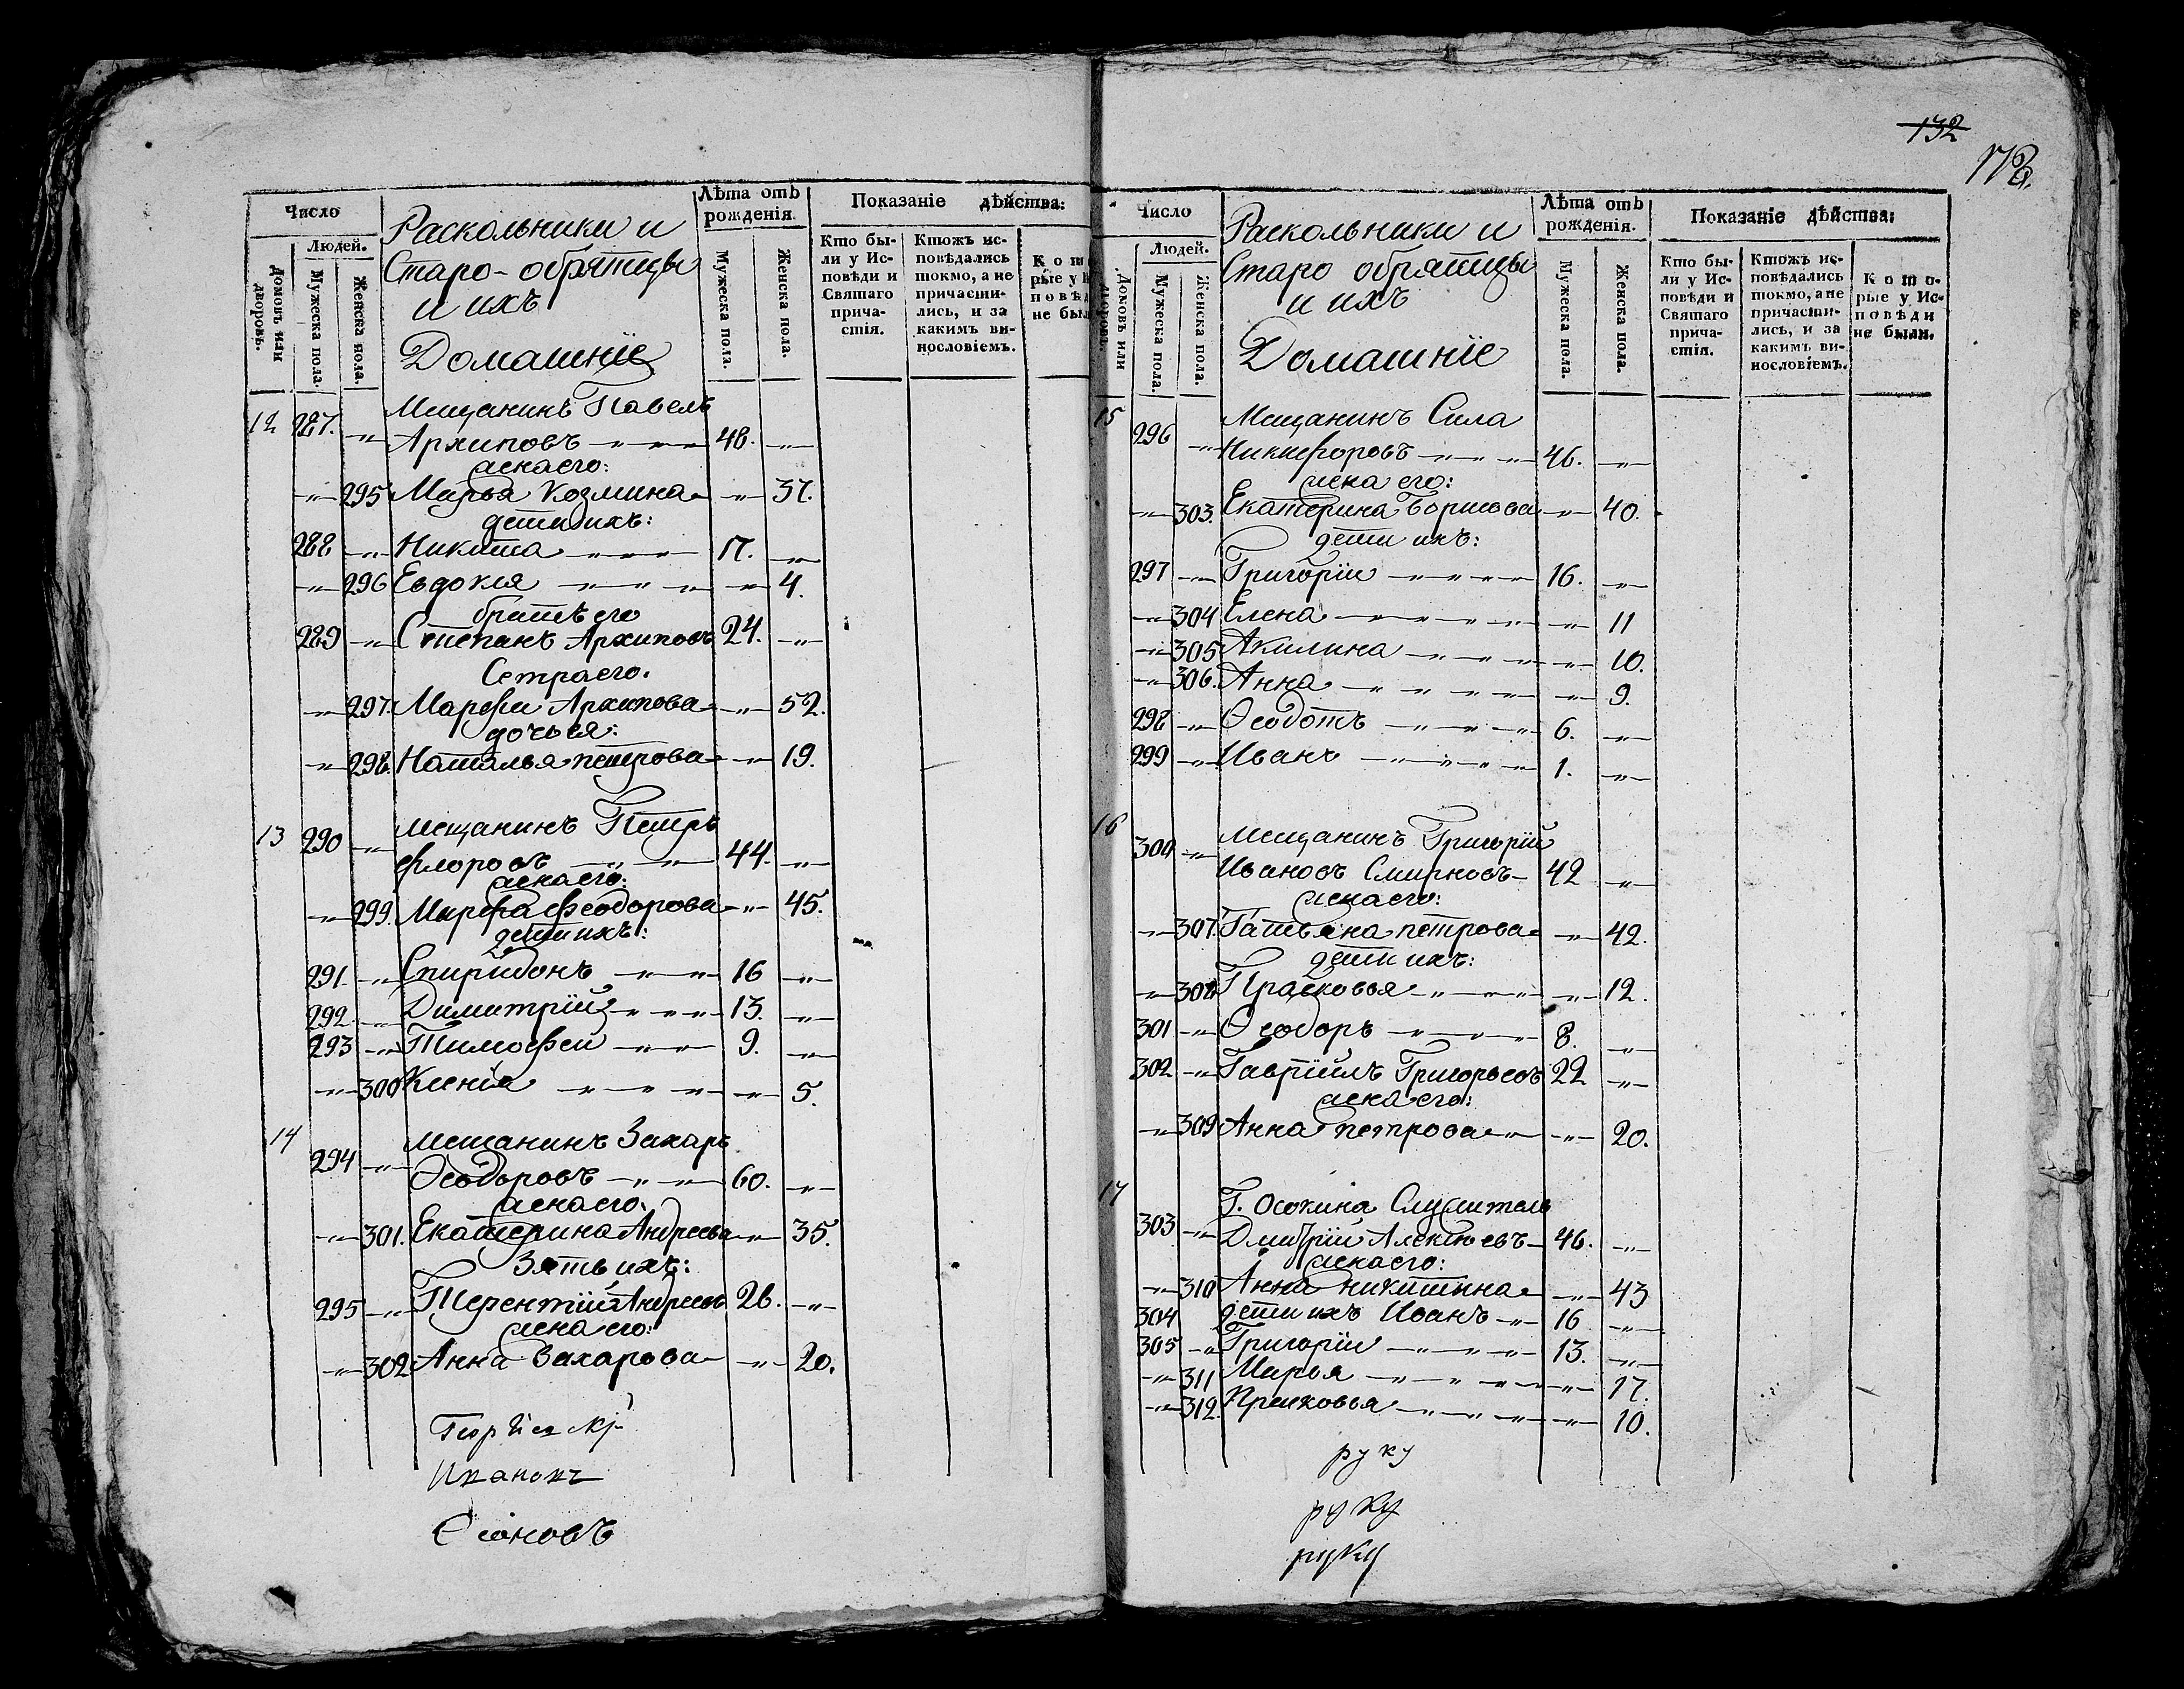 132
178.
Число
Людей.
Домовъ или дворовъ.
Мужеска пола.
Женска пола.
Раскольники и
Старо-обрятцы
и ихъ
Домашніе
Лѣта отъ рожденія.
Мужеска пола.
Женска пола.
Показаніе дѣйства:
Кто бы-
ли у Ис-
повѣди и
Святаго
прича-
стія.
Ктожъ ис-
повѣдались
токмо, а не
причасти-
лись, и за
какимъ ви-
нословіемъ.
Кото
рые у И
повѣд
не был
12 287. -"- Мещанинъ Павелъ
Архиповъ -"-"- 48. -"-
жена его:
-"- 295 Марья Козмина -"- 37.
дети ихъ:
288 -"- Никита -"-"- 17. -"-
-"- 296 Евдокія -"-"- -"- 4.
братъ его
289 -"- Степанъ Архиповъ 24. -"-
Сетра его.
-"- 297. Марфа Архипова -"- 52.
дочь ея:
-"- 298. Наталья петрова -"- 19.
13 290 -"- мещанинъ Петръ
флоровъ -"- 44. -"-
жена его:
-"- 299. Марфа феодорова -"- 45.
дети ихъ:
291. -"- Спиридонъ -"-"- 16 -"-
292. -"- Димитрій -"-"- 13. -"-
293 -"- Тимофеи -"-"- 9. -"-
-"- 300 Ксенія -"-"-"- -"- 5.
14
294 -"- мещанинъ Захаръ
Ѳеодоровъ -"-"- 60. -"-
жена его:
-"- 301. Екатерина Андреева -"- 35.
Зять ихъ:
295 -"- Терентій Андреевъ 26. -"-
жена его:
-"- 302 Анна Захарова -"- 20.
Ивановъ
Число
Людей.
Домовъ или дворовъ.
Мужеска пола.
Женска пола.
Раскольники и
Старо обрятцы
и ихъ
Домашніе
Лѣта отъ рожденія.
Мужеска пола.
Женска пола.
Показаніе дѣйства:
Кто бы-
ли у Ис-
повѣди и
Святаго
прича-
стія.
Ктожъ ис-
повѣдались
токмо, а не
причасти-
лись, и за
какимъ ви-
нословіемъ.
Кото-
рые у Ис-
повѣди
не были.
15
296 -"- Мещанинъ Сила
Никифоровъ -"-"- 46. -"-
жена его:
-"- 303. Екатерина Борисова -"- 40.
дети ихъ:
297 -"- Григоріи -"-"-"- 16. -"-
-"- 304 Елена -"-"-"- -"- 11
-"- 305 Акилина -"-"-"- -"- 10.
-"- 306. Анна -"-"-"- -"- 9.
298 -"- Ѳеодотъ -"-"- 6. -"-
299 -"- Иванъ -"-"-"- 1. -"-
16
300 -"- мещанинъ Григорій
Ивановъ Смирновъ - 42 -"-
жена его:
-"- 307. Татьяна петрова -"- 42.
дети ихъ:
-"- 308 Прасковья -"-"- -"- 12.
301 -"- Ѳеодоръ -"-"- 8. -"-
302 -"- Гавріилъ Григорьевъ 22 -"-
жена его:
-"- 309 Анна петрова -"- -"- 20.
17
303 -"- Г. Осокина Служитель
Дмитрій Алексѣевъ - 46. -"-
жена его:
-"- 310 Анна никитина -"- 43
304 дети ихъ Иванъ -"- 16 -"-
305 -"- Григоріи -"-"-"- 13. -"-
-"- 311 Марья -"-"-"- -"- 17.
-"- 312. Прасковья -"-"-"- -"- 10.
руку
руку
руку